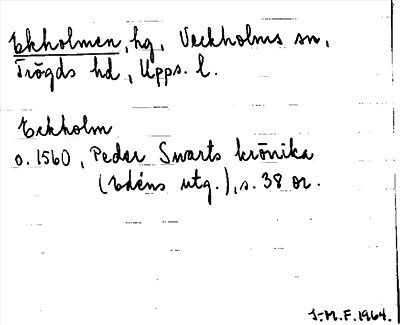 Ekholmen, hg, Veckholms sn,
Trögds hd, Upps. l.
Eckholm
o. 1560, Peder Swarts krönika
(Edéns utg.), s. 38 or.
J-M.F. 1964.